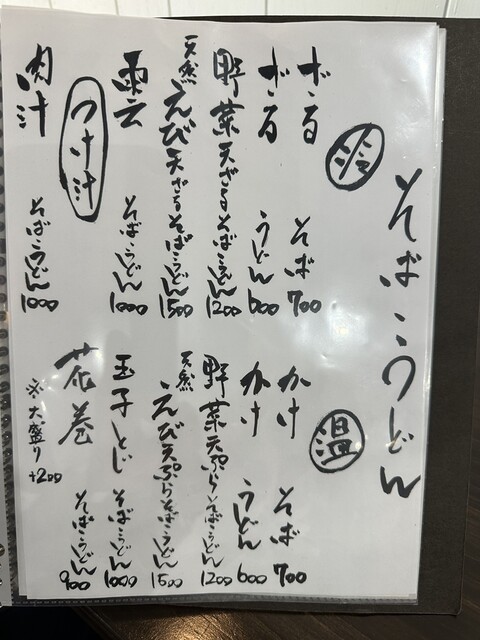 そば・うどん
冷
ざる そば 700
ざる うどん 600
野菜天ざるそば・うどん 1200
天然えび天ざるそば・うどん 1500
雲 そば・うどん 1000
つけ汁
肉汁 そば・うどん 1000
温
かけ そば 700
かけ うどん 600
野菜天ぷらそば・うどん 1200
天然えび天ぷらそば・うどん 1500
玉子とじ そば・うどん 1000
花巻 そば・うどん 900
※大盛り +200